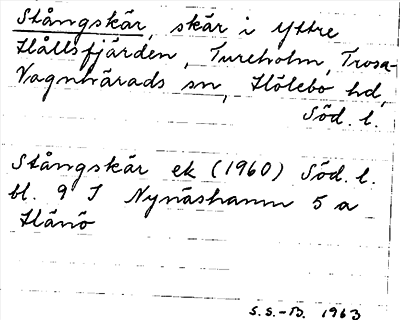 Stångskär, skär i yttre
Hållsfjärden, Tureholm, Trosa-
Vagnhärads sn, Hölebo hd,
Söd. l.
Stångskär ek (1960) Söd. l.
bl. 9 I Nynäshamn 5 a
Hånö
S.S.-B. 1963